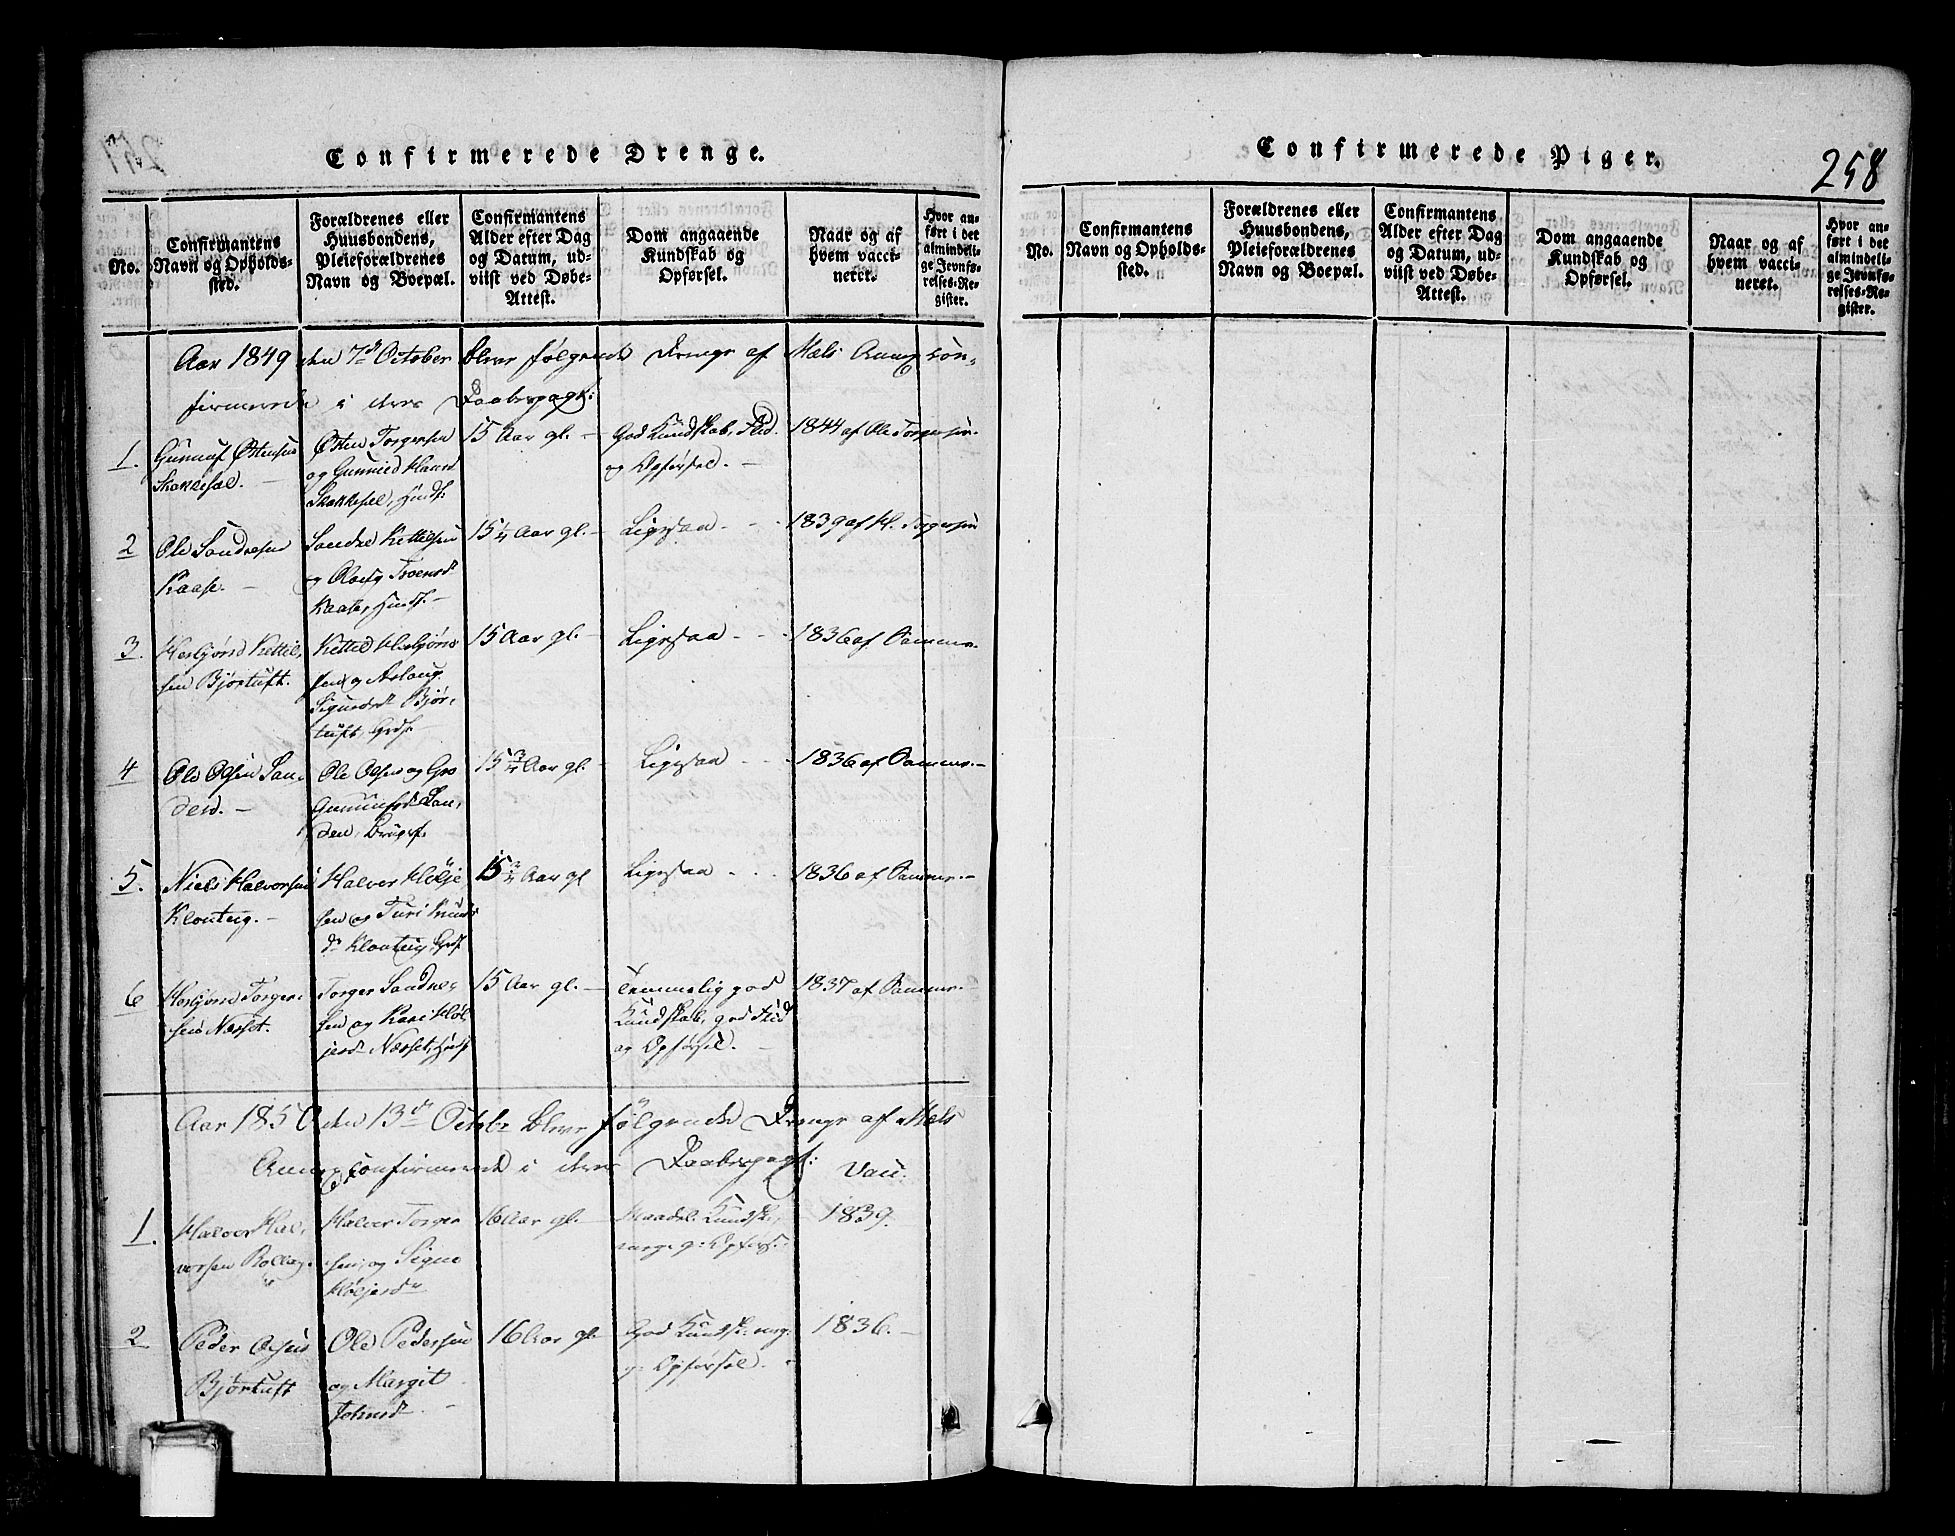 Confirmerede Drenge.
No.
Confirmantens
Navn og Opholds-
sted.
Forældrenes eller
Huusbondens,
Pleieforældrenes
Navn og Boepæl.
Confirmantens
Alder efter Dag
og Datum, ud-
viist ved Døbe-
Attest.
Dom angaaende
Kundskab og
Opførsel.
Naar og af
hvem vacci-
neret.
Hvor an-
ført i det
almindeli-
ge Jevnfø-
relses-Re-
gister.
Aar 1849 den 7de October bleve følgende Drenge af Mæls Annex con-
firmerede i deres Daabespagt:
1.
Gunnuf Østensen
Skakkesæl. -
Østen Torgersen
og Gunnild
Skakkesæl, Huusf:
15 Aar gl. -
God Kundskab, Flid
og Opførsel. -
1844 af Ole Torgersen.
2
Ole Sondresen
Kaase. -
Sondre Kettilsen
og Aaste, Huusf. -
15 1/4 Aar gl. -
Ligesaa - -
1839 af H. Torgersen
3.
Herbjørn Kettil-
sen Bjørtuft.
Kettil Herbjørn-
sen og Aslaug
Sigurdsd Bjør-
tuft, Grdf -
15 Aar gl. -
Ligesaa - - -
1836 af Samme.
4
Ole Olsen San-
den. -
Ole Olsen og Gro
Gunnufsd San-
den, Brugsf.
15 3/4 Aar gl. -
Ligesaa - - -
1836 af Samme. -
5.
Niels Halvorsen
Klouteig. -
Halvor Høljе
sen og Turi Knuds
dr Klouteig, Grdf
15 3/4 Aar gl
Ligesaa - - -
1836 af Samme. -
6
Herbjørn Torger-
sen Næsset.
Torger Sondre-
sen og Kari Høl-
jesdr Næsset, Huusf
15 Aar gl. -
Temmelig god
Kundskab, god Flid
og Opførsel. -
1837 af Samme. -
Aar 1850 den 13de Octobr bleve følgende Drenge af Mæls
Annex confirmerede i deres Daabespagt: Vacc.
1.
Halvor Hal-
vorsen Rollag.
Halvor Torger
sen, og Signe
Høljesdr
16 Aar gl. -
Maadel. Kundsk.,
1839.
2
Peder Olsen
Bjørtuft
Ole Pedersen
og Margit
Johnsd -
16 Aar gl. -
God Kundsk:
Opførsel. -
1836. -
Confirmerede Piger.
258
No.
Confirmantens
Navn og Opholds-
sted.
Forældrenes eller
Huusbondens,
Pleieforældrenes
Navn og Boepæl.
Confirmantens
Alder efter Dag
og Datum, ud-
viist ved Døbe-
Attest.
Dom angaaende
Kundskab og
Opførsel.
Naar og af
hvem vacci-
neret.
Hvor an-
ført i det
almindeli-
ge Jevnfø-
relses-Re-
gister.